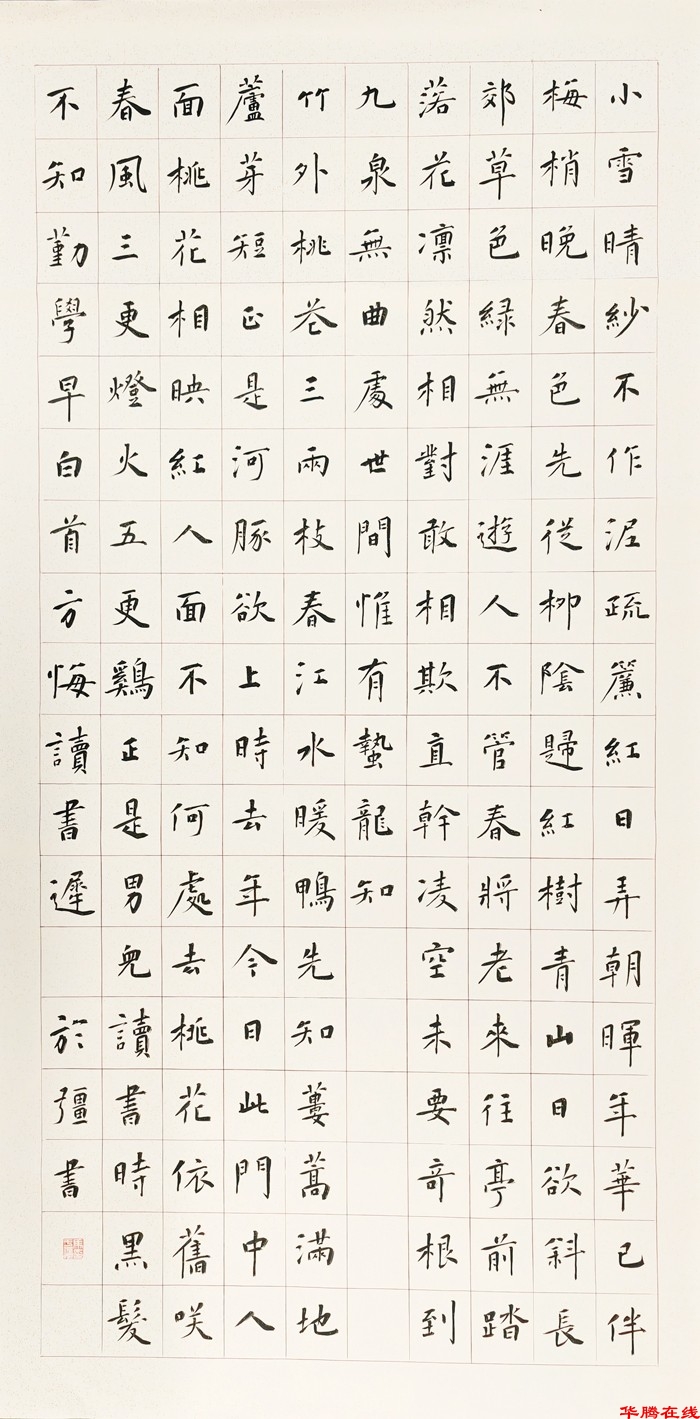 小雪晴紗不作泥疏簾紅日弄朝暉年華已伴
梅梢晚春色先從柳陰歸紅樹青山日欲斜長
郊草色緑無涯遊人不管春將老來往亭前踏
落花凛然相對敢相欺直幹凌空未要奇根到
九泉無曲處世間惟有蟄龍知
竹外桃花三兩枝春江水暖鴨先知蔞蒿滿地
蘆芽短正是河豚欲上時去年今日此門中人
面桃花相映紅人面不知何處去桃花依舊咲
春風三更燈火五更鷄正是男兒讀書時黑髮
不知勤學早白首方悔讀書遲
於彊書
华腾在线